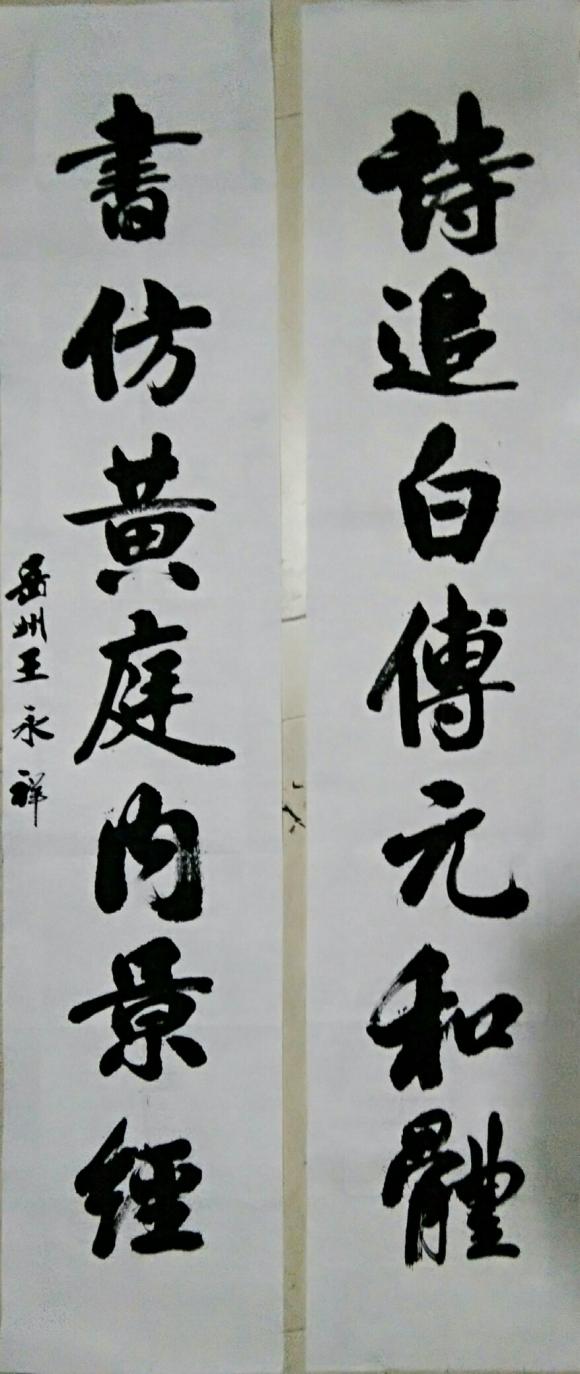 詩追白傅元和體
書仿黃庭內景經
岳州王永祥